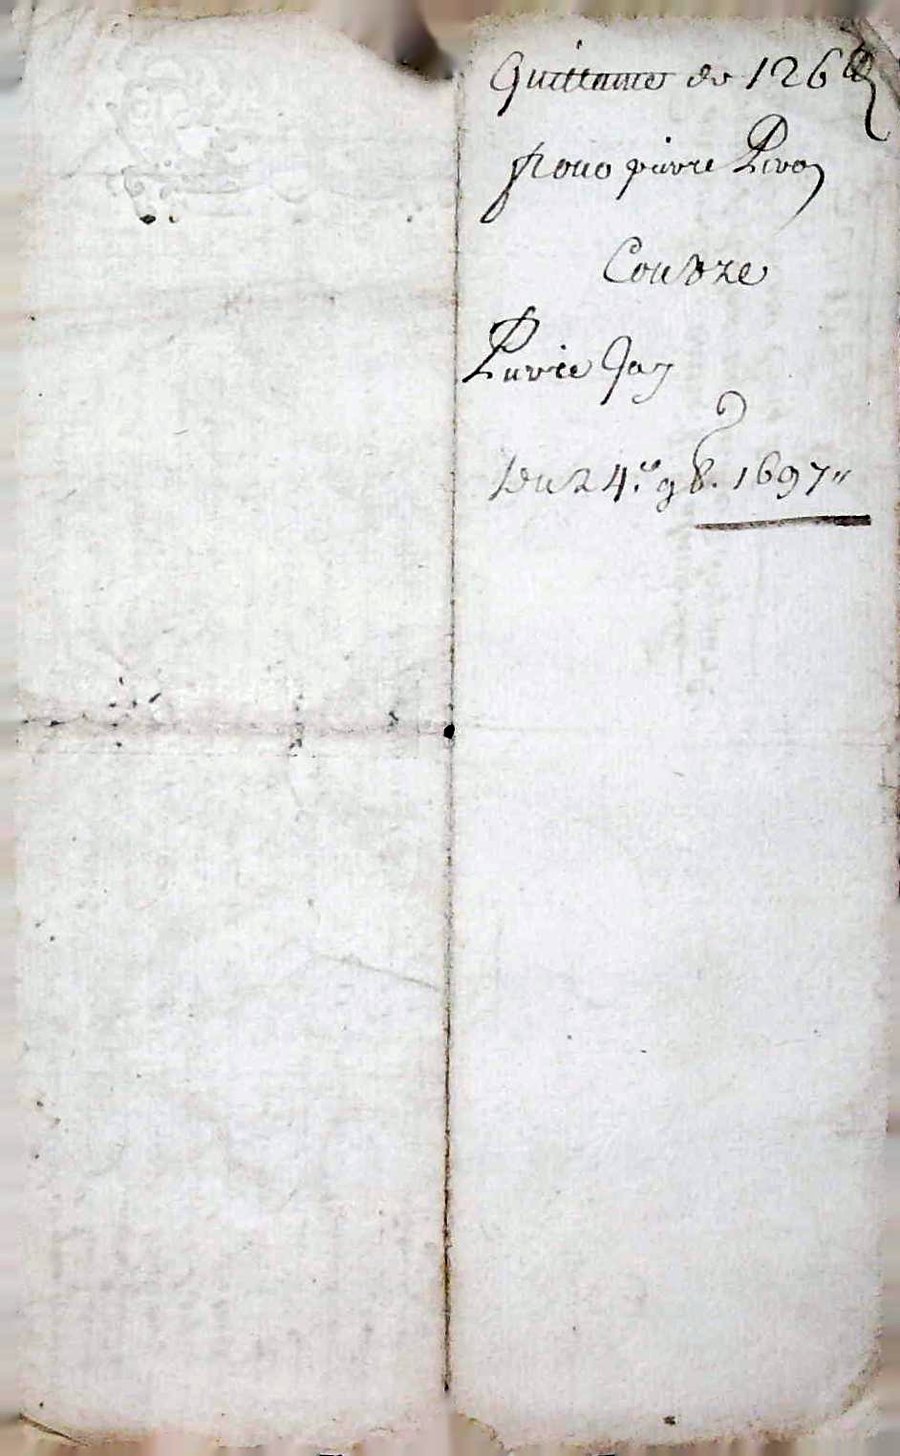 Quittance de 126 ℔
pour pierre Piron
Contre
Pierre Jay
Du 24.e 9b. 1697